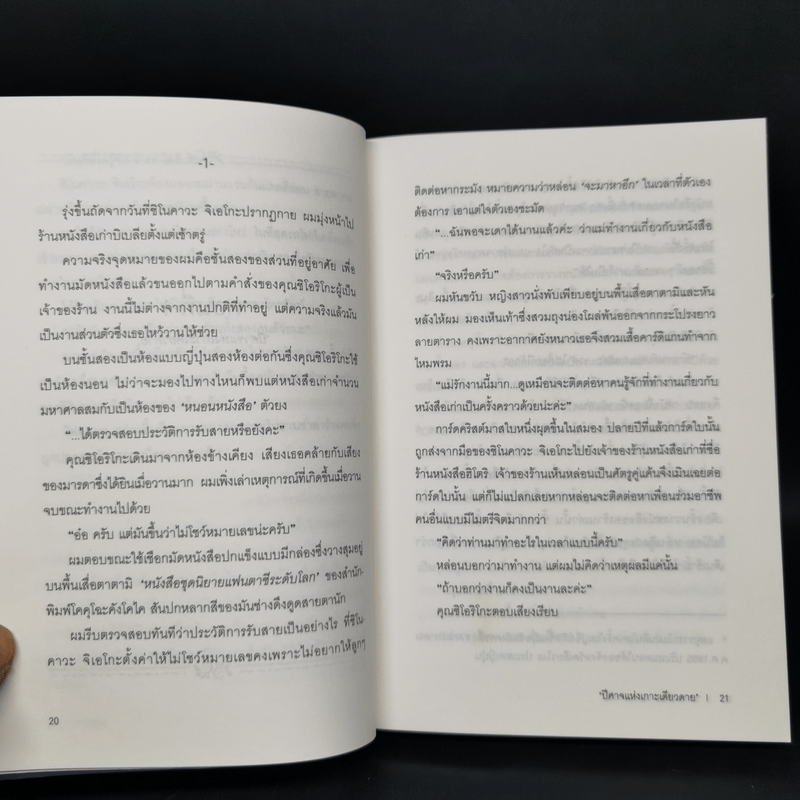 -1-
รุ่งขึ้นถัดจากวันที่ชิโนคาวะ จิเอโกะปรากฏกาย ผมมุ่งหน้าไป
ร้านหนังสือเก่าบิเบลียตั้งแต่เช้าตรู่
ความจริงจุดหมายของผมคือชั้นสองของส่วนที่อยู่อาศัย เพื่อ
ทำงานมัดหนังสือแล้วขนออกไปตามคำสั่งของคุณชิโอริโกะผู้เป็น
เจ้าของร้าน งานนี้ไม่ต่างจากงานปกติที่ทำอยู่ แต่ความจริงแล้วมัน
เป็นงานส่วนตัวซึ่งเธอไหว้วานให้ช่วย
บนชั้นสองเป็นห้องแบบญี่ปุ่นสองห้องต่อกันซึ่งคุณชิโอริโกะใช้
เป็นห้องนอน ไม่ว่าจะมองไปทางไหนก็พบแต่หนังสือเก่าจำนวน
มหาศาลสมกับเป็นห้องของ ‘หนอนหนังสือ’ ตัวยง
“...ได้ตรวจสอบประวัติการรับสายหรือยังคะ”
คุณชิโอริโกะเดินมาจากห้องข้างเคียง เสียงเธอคล้ายกับเสียง
ของมารดาซึ่งได้ยินเมื่อวานมาก ผมเพิ่งเล่าเหตุการณ์ที่เกิดขึ้นเมื่อวาน
จบขณะทำงานไปด้วย
“อ๋อ ครับ แต่มันขึ้นว่าไม่โชว์หมายเลขน่ะครับ”
ผมตอบขณะใช้เชือกมัดหนังสือปกแข็งแบบมีกล่องซึ่งวางสุมอยู่
บนพื้นเสื่อตาตามิ ‘หนังสือชุดนิยายแฟนตาซีระดับโลก’ ของสำนัก-
พิมพ์โคคุโฉะคังโคไค สันปกหลากสีของมันช่างดึงดูดสายตานัก
ผมรีบตรวจสอบทันทีว่าประวัติการรับสายเป็นอย่างไร ที่ชิโน-
คาวะ จิเอโกะตั้งค่าให้ไม่โชว์หมายเลขคงเพราะไม่อยากให้ลูกๆ
20
ติดต่อหากระมัง หมายความว่าหล่อน ‘จะมาหาอีก’ ในเวลาที่ตัวเอง
ต้องการ เอาแต่ใจตัวเองชะมัด
“...ฉันพอจะเดาได้นานแล้วค่ะ ว่าแม่ทำงานเกี่ยวกับหนังสือ
เก่า”
“จริงหรือครับ”
ผมหันขวับ หญิงสาวนั่งพับเพียบอยู่บนพื้นเสื่อตาตามิและหัน
หลังให้ผม มองเห็นเท้าซึ่งสวมถุงน่องโผล่พ้นออกจากกระโปรงยาว
ลายตาราง คงเพราะอากาศยังหนาวเธอจึงสวมเสื้อคาร์ดิแกนทำจาก
ไหมพรม
“แม่รักงานนี้มาก...ดูเหมือนจะติดต่อหาคนรู้จักที่ทำงานเกี่ยวกับ
หนังสือเก่าเป็นครั้งคราวด้วยน่ะค่ะ”
การ์ดคริสต์มาสใบหนึ่งผุดขึ้นในสมอง ปลายปีที่แล้วการ์ดใบนั้น
ถูกส่งจากมือของชิโนคาวะ จิเอโกะไปยังเจ้าของร้านหนังสือเก่าที่ชื่อ
ร้านหนังสือฮิโตริ เจ้าของร้านเห็นหล่อนเป็นศัตรูคู่แค้นจึงเมินเฉยต่อ
การ์ดใบนั้น แต่ก็ไม่แปลกเลยหากหล่อนจะติดต่อหาเพื่อนร่วมอาชีพ
คนอื่นแบบมีไมตรีจิตมากกว่า
“คิดว่าท่านมาทำอะไรในเวลาแบบนี้ครับ”
หล่อนบอกว่ามาทำงาน แต่ผมไม่คิดว่าเหตุผลมีแค่นั้น
“ถ้าบอกว่างานก็คงเป็นงานละค่ะ”
คุณชิโอริโกะตอบเสียงเรียบ
“ปีศาจแห่งเกาะเดียวดาย” | 21